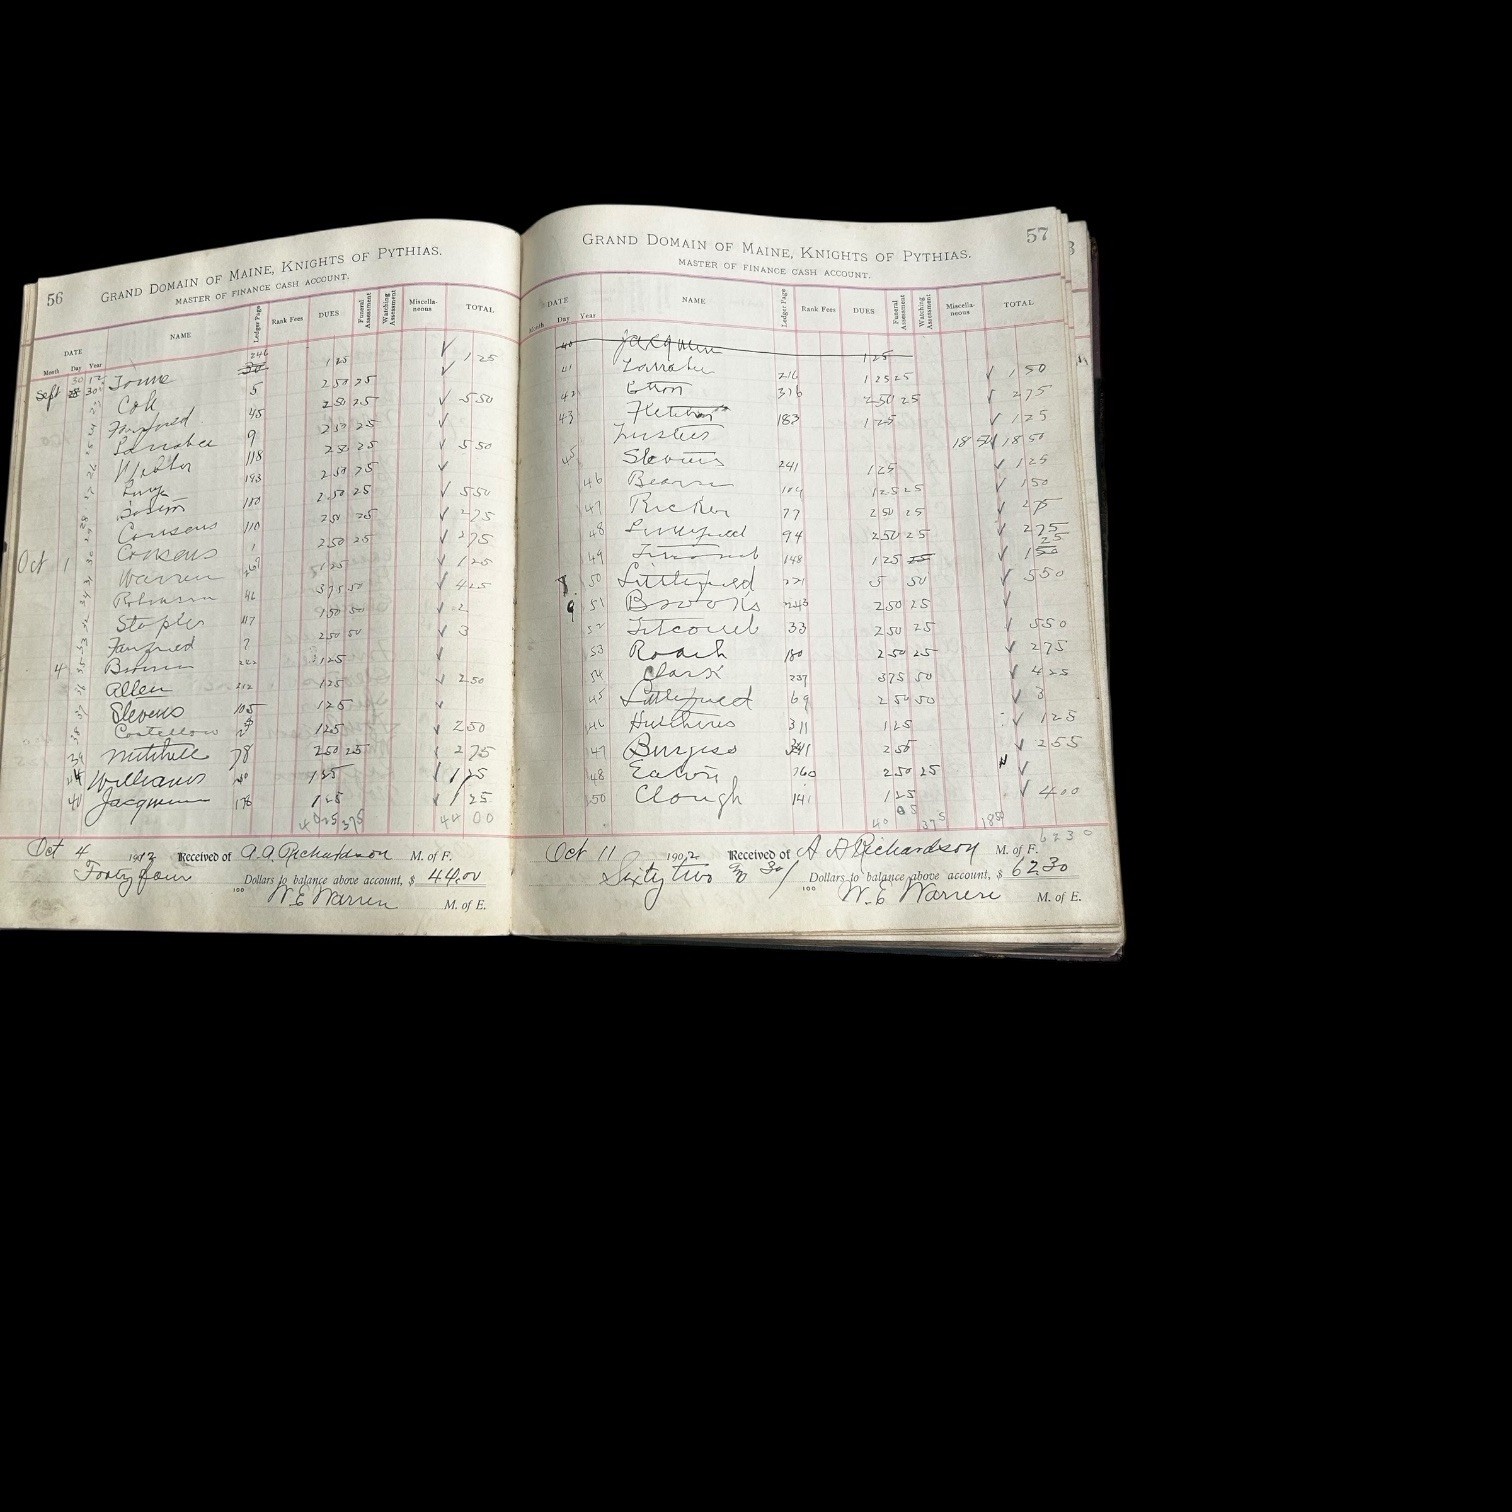 56
GRAND DOMAIN OF MAINE, KNIGHTS OF PYTHIAS.
MASTER OF FINANCE CASH ACCOUNT.
DATE NAME Ledger Page Rank Fees DUES Funeral Assessment Watching Assessment Miscellaneous TOTAL
Month Day Year
Sept 246 1 25 1 25
Cole 5 2 50 25
45 2 50 25 5 50
Larrabee 9 2 50 25
118 2 50 25 5 50
193 2 50 25
180 2 50 25 5 50
Cousens 110 2 50 25 2 75
Oct 1 Cousens 1 2 50 25 2 75
Warren 1 25 1 25
Robinson 46 3 75 50 4 25
Staples 117 1 50 50 2
7 2 50 50 3
4 Brown 1 25
Allen 212 1 25 2 50
Stevens 105 1 25
Costellow 1 25 2 50
Mitchell 78 2 50 25 2 75
Williams 40 1 25 1 25
40 Jacques 176 1 25 1 25
40 25 3 75 44 00
Oct 4 1902 Received of A. A. Richardson M. of F.
Forty four /100 Dollars to balance above account, $ 44.00
W E Warren M. of E.
57
GRAND DOMAIN OF MAINE, KNIGHTS OF PYTHIAS.
MASTER OF FINANCE CASH ACCOUNT.
DATE NAME Ledger Page Rank Fees DUES Funeral Assessment Watching Assessment Miscellaneous TOTAL
Month Day Year
40 Jacques 1 25
41 Larrabee 216 1 25 25 1 50
42 316 2 50 25 2 75
43 Fletcher 183 1 25 1 25
Trustees 18 50 18 50
45 Stevens 241 1 25 1 25
46 104 1 25 25 1 50
47 Ricker 77 2 50 25 2 75
48 Littlefield 94 2 50 25 2 75
49 148 1 25 25 1 25
8 50 Littlefield 221 5 50 5 50
9 51 Brooks 243 2 50 25
52 Titcomb 33 2 50 25 5 50
53 Roach 180 2 50 25 2 75
54 Clark 237 3 75 50 4 25
45 Littlefield 69 2 50 50 3
46 Hutchins 311 1 25 1 25
47 Burgess 2 55
48 Eaton 160 2 50 25
50 Clough 141 1 25 4 00
40 05 3 75 18 50
62 30
Oct 11 1902 Received of A A Richardson M. of F.
Sixty two 30/100 Dollars to balance above account, $ 62 30
W. E Warren M. of E.